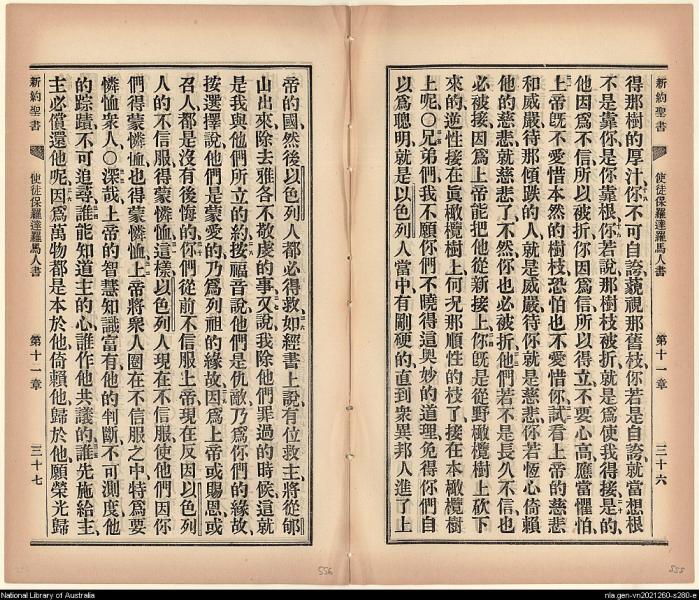 新約聖書 使徒保羅達羅馬人書 第十一章 三十六
得那樹的厚汁、你不可自誇藐視那舊枝、你若是自誇、就當想根
不是靠你、是你靠根、你若說、那樹枝被折、就是爲使我得接、是的、
他因爲不信、所以被折、你因爲信、所以得立、不要心高、應當懼怕、
上帝旣不愛惜本然的樹枝、恐怕也不愛惜你、試看上帝的慈悲
和威嚴、待那傾跌的人、就是威嚴、待你就是慈悲、你若恆心倚賴
他的慈悲、就慈悲了、不然、你也必被折、他們若不是長久不信、也
必被接、因爲上帝能把他從新接上、你旣是從野橄欖樹上砍下
來的、逆性接在眞橄欖樹上、何況那順性的枝了、接在本橄欖樹
上呢、○兄弟們、我不願你們不曉得這奧妙的道理、免得你們自
以爲聰明、就是以色列人當中、有剛硬的、直到衆異邦人進了上
帝的國、然後以色列人都必得救、如經書上說、有位救主、將從郇
山出來、除去雅各不敬虔的事、又說、我除他們罪過的時候、這就
是我與他們所立的約、按福音說、他們是仇敵、乃爲你們的緣故、
按選擇說、他們是蒙愛的、乃爲列祖的緣故、因爲上帝或賜恩或
召人、都是沒有後悔的、你們從前不信服上帝、現在反因以色列
人的不信服、得蒙憐恤、這樣、以色列人現在不信服、使他們因你
們得蒙憐恤、也得蒙憐恤、上帝將衆人圈在不信服之中、特爲要
憐恤衆人、○深哉、上帝的智慧知識富有、他的判斷不可測度、他
的踪蹟不可追尋、誰能知道主的心、誰作他共議的、誰先施給主、
主必償還他呢、因爲萬物都是本於他、倚賴他、歸於他、願榮光歸
新約聖書 使徒保羅達羅馬人書 第十一章 三十七
556
555
National Library of Australia
nla.gen-vn2021260-s280-e